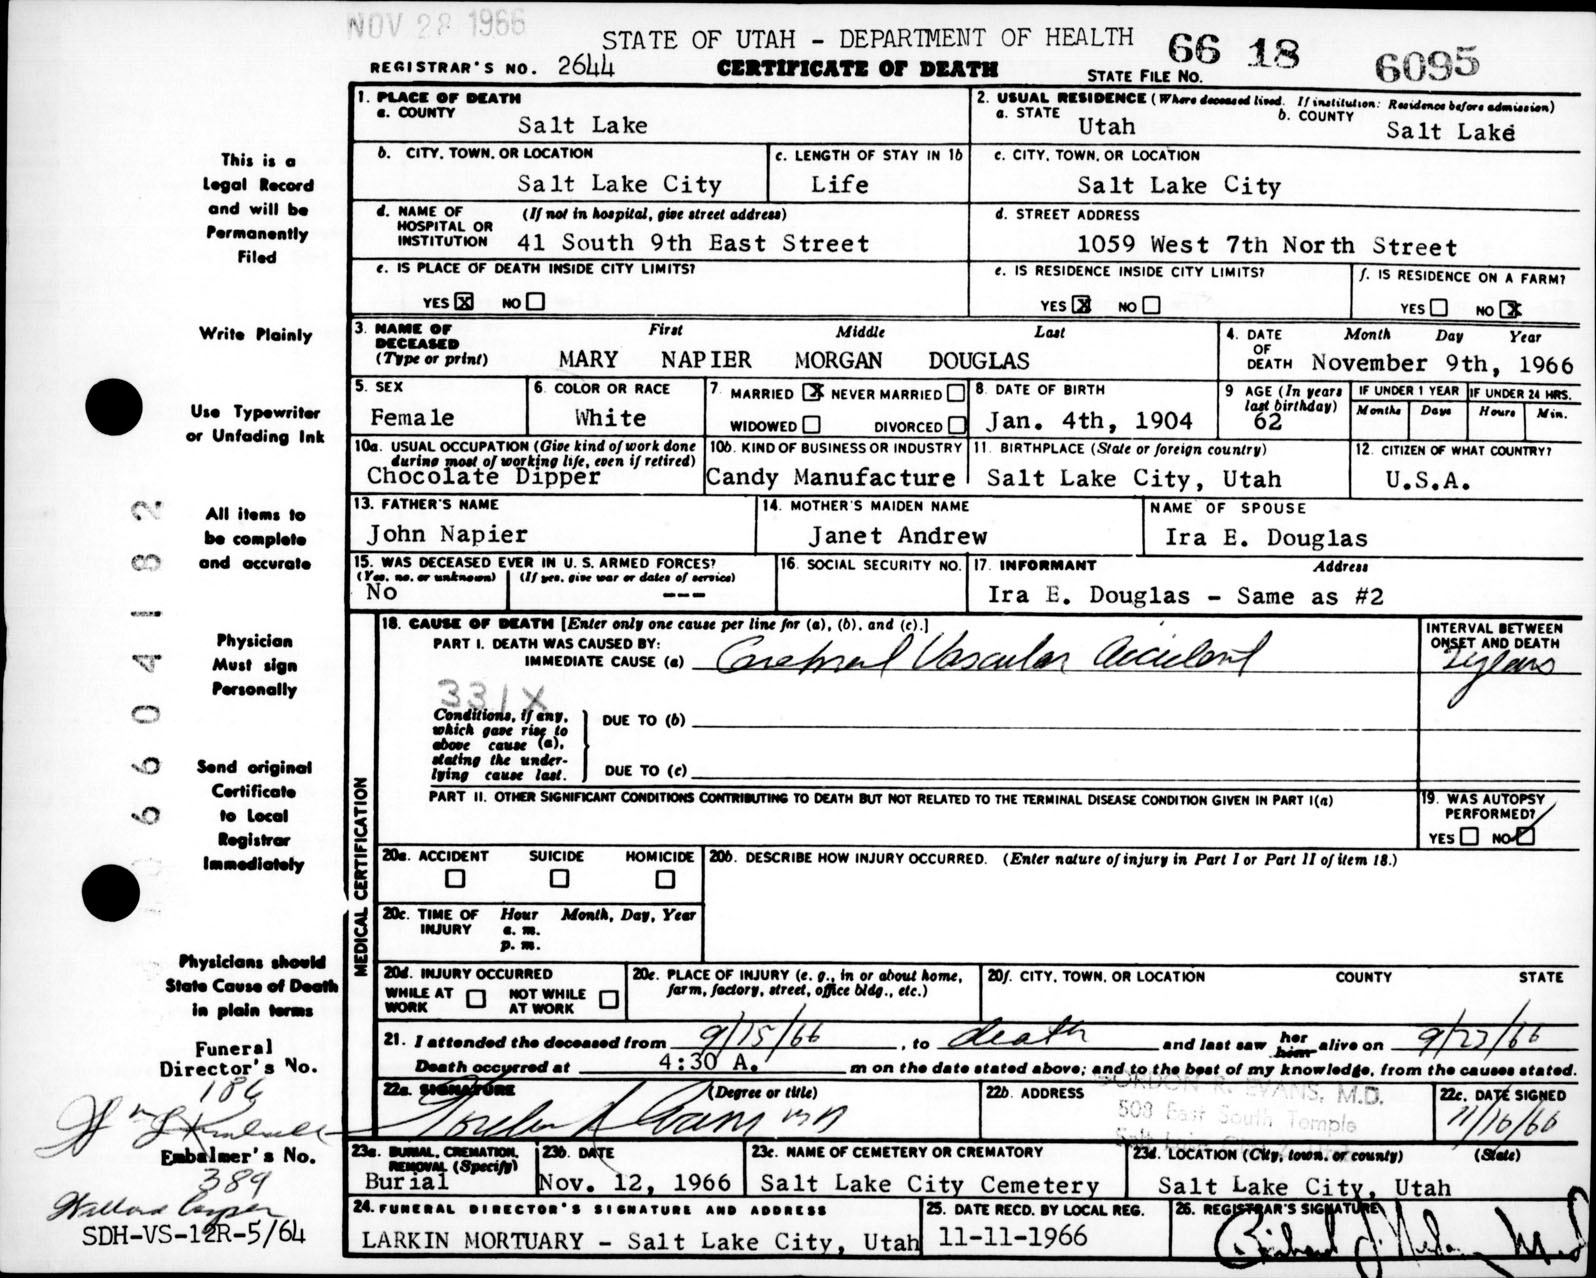 NOV 28 1966
STATE OF UTAH - DEPARTMENT OF HEALTH
66 18 6095
REGISTRAR'S NO. 2644
CERTIFICATE OF DEATH
STATE FILE NO.
1. PLACE OF DEATH
a. COUNTY
Salt Lake
2. USUAL RESIDENCE (Where deceased lived. If institution: Residence before admission)
a. STATE
Utah
b. COUNTY
Salt Lake
b. CITY, TOWN, OR LOCATION
Salt Lake City
c. LENGTH OF STAY IN 1b
Life
c. CITY, TOWN, OR LOCATION
Salt Lake City
d. NAME OF HOSPITAL OR INSTITUTION
(If not in hospital, give street address)
41 South 9th East Street
d. STREET ADDRESS
1059 West 7th North Street
e. IS PLACE OF DEATH INSIDE CITY LIMITS?
YES X NO
e. IS RESIDENCE INSIDE CITY LIMITS?
YES X NO
f. IS RESIDENCE ON A FARM?
YES NO X
3. NAME OF DECEASED
(Type or print)
First Middle Last
MARY NAPIER MORGAN DOUGLAS
4. DATE OF DEATH
Month Day Year
November 9th, 1966
5. SEX
Female
6. COLOR OR RACE
White
7. MARRIED X NEVER MARRIED
WIDOWED DIVORCED
8. DATE OF BIRTH
Jan. 4th, 1904
9 AGE (In years last birthday)
62
IF UNDER 1 YEAR
Months Days
IF UNDER 24 HRS.
Hours Min.
10a. USUAL OCCUPATION (Give kind of work done during most of working life, even if retired)
Chocolate Dipper
10b. KIND OF BUSINESS OR INDUSTRY
Candy Manufacture
11. BIRTHPLACE (State or foreign country)
Salt Lake City, Utah
12. CITIZEN OF WHAT COUNTRY?
U.S.A.
13. FATHER'S NAME
John Napier
14. MOTHER'S MAIDEN NAME
Janet Andrew
NAME OF SPOUSE
Ira E. Douglas
15. WAS DECEASED EVER IN U. S. ARMED FORCES?
(Yes, no, or unknown) (If yes, give war or dates of service)
No ---
16. SOCIAL SECURITY NO.
17. INFORMANT Address
Ira E. Douglas - Same as #2
18. CAUSE OF DEATH [Enter only one cause per line for (a), (b), and (c).]
PART I. DEATH WAS CAUSED BY:
IMMEDIATE CAUSE (a) Cerebral Vascular Accident
INTERVAL BETWEEN ONSET AND DEATH
years
331X
Conditions, if any, which gave rise to above cause (a), stating the underlying cause last.
DUE TO (b)
DUE TO (c)
PART II. OTHER SIGNIFICANT CONDITIONS CONTRIBUTING TO DEATH BUT NOT RELATED TO THE TERMINAL DISEASE CONDITION GIVEN IN PART I(a)
19. WAS AUTOPSY PERFORMED?
YES NO
MEDICAL CERTIFICATION
20a. ACCIDENT SUICIDE HOMICIDE
20b. DESCRIBE HOW INJURY OCCURRED. (Enter nature of injury in Part I or Part II of item 18.)
20c. TIME OF INJURY
Hour Month, Day, Year
a. m.
p. m.
20d. INJURY OCCURRED
WHILE AT WORK NOT WHILE AT WORK
20e. PLACE OF INJURY (e. g., in or about home, farm, factory, street, office bldg., etc.)
20f. CITY, TOWN, OR LOCATION COUNTY STATE
21. I attended the deceased from 9/15/66, to death and last saw her him alive on 9/27/66
Death occurred at 4:30 A. m on the date stated above; and to the best of my knowledge, from the causes stated.
22a. SIGNATURE (Degree or title)
Gordon R Evans MD
22b. ADDRESS
GORDON R. EVANS, M.D.
508 East South Temple
Salt Lake City
22c. DATE SIGNED
11/16/66
23a. BURIAL, CREMATION, REMOVAL (Specify)
Burial
23b. DATE
Nov. 12, 1966
23c. NAME OF CEMETERY OR CREMATORY
Salt Lake City Cemetery
23d. LOCATION (City, town, or county) (State)
Salt Lake City, Utah
24. FUNERAL DIRECTOR'S SIGNATURE AND ADDRESS
LARKIN MORTUARY - Salt Lake City, Utah
25. DATE RECD. BY LOCAL REG.
11-11-1966
26. REGISTRAR'S SIGNATURE
This is a
Legal Record
and will be
Permanently
Filed
Write Plainly
Use Typewriter
or Unfading Ink
All items to
be complete
and accurate
Physician
Must sign
Personally
Send original
Certificate
to Local
Registrar
Immediately
Physicians should
State Cause of Death
in plain terms
Funeral
Director's No.
186
Embalmer's No.
389
SDH-VS-12R-5/64
6604182